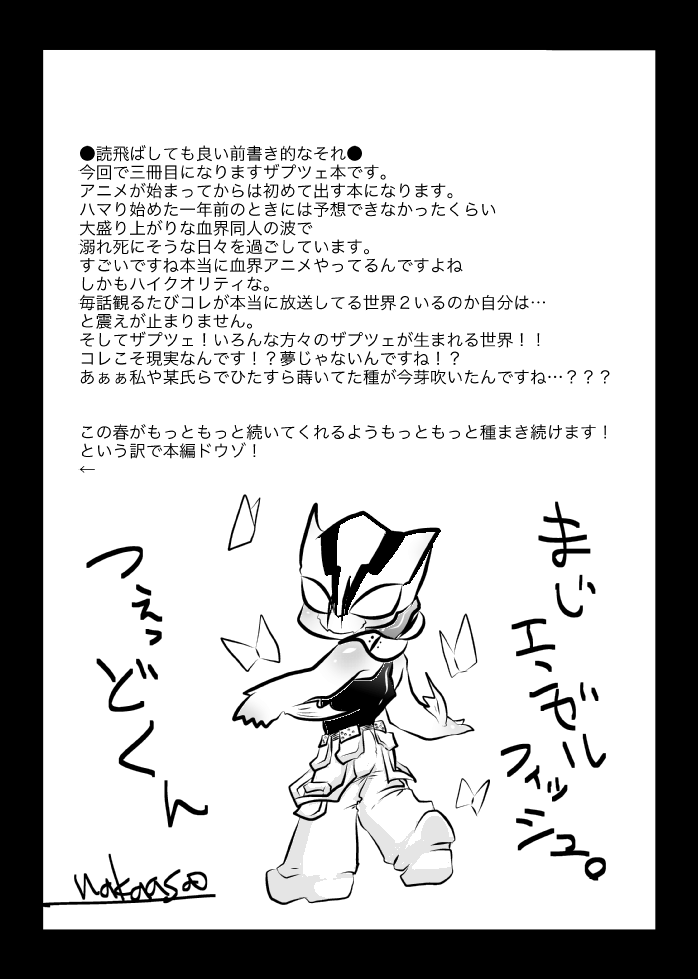 ●読飛ばしても良い前書き的なそれ●
今回で三冊目になりますザプツェ本です。
アニメが始まってからは初めて出す本になります。
ハマり始めた一年前のときには予想できなかったくらい
大盛り上がりな血界同人の波で
溺れ死にそうな日々を過ごしています。
すごいですね本当に血界アニメやってるんですよね
しかもハイクオリティな。
毎話観るたびコレが本当に放送してる世界２いるのか自分は…
と震えが止まりません。
そしてザプツェ！いろんな方々のザプツェが生まれる世界！！
コレこそ現実なんです！？夢じゃないんですね！？
あぁぁ私や某氏らでひたすら蒔いてた種が今芽吹いたんですね…？？？
この春がもっともっと続いてくれるようもっともっと種まき続けます！
という訳で本編ドウゾ！
←
まじ
エンゼル
フィッシュ。
つぇっ
どくん
nakaasao